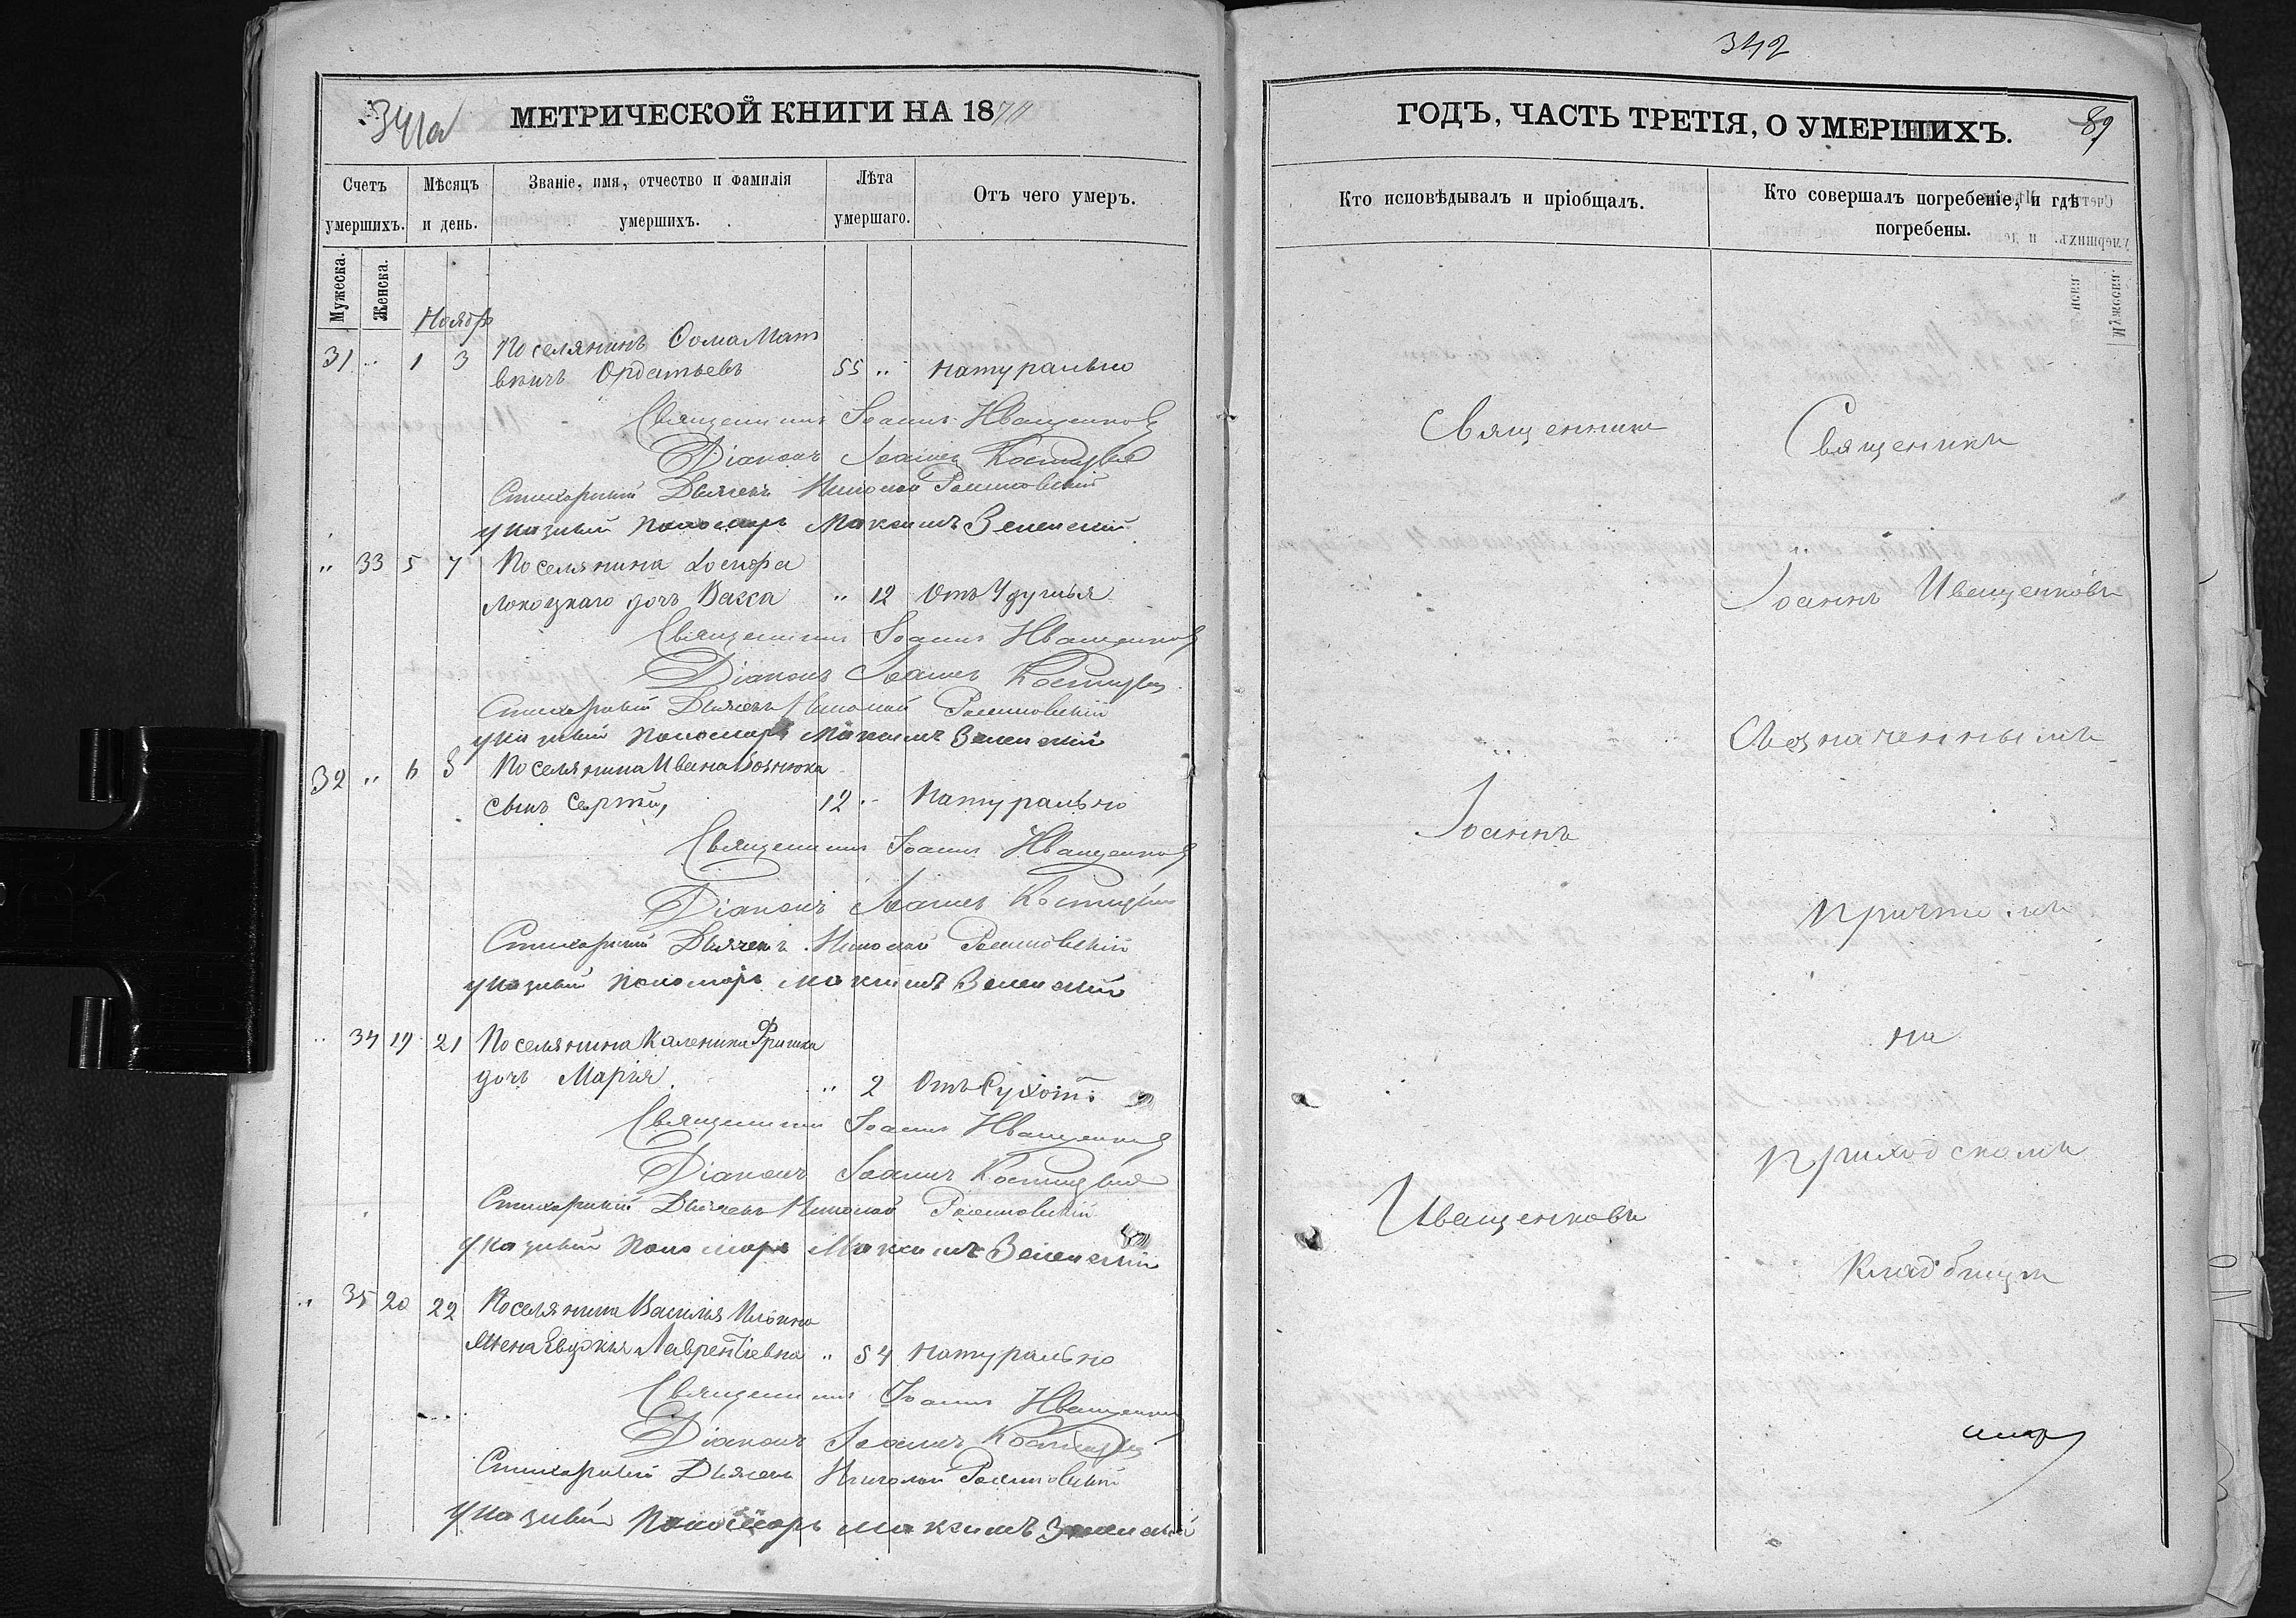 341а
МЕТРИЧЕСКОЙ КНИГИ НА 1870
Счетъ умершихъ.
Мѣсяцъ и день.
Званіе, имя, отчество и фамилія умершихъ.
Лѣта умершаго.
Отъ чего умеръ.
Мужеска.
Женска.
Ноябр
31 " 1 3 Поселянинъ Ѳома Мат
вѣичъ 55 " натурально
Священникъ Іоаннъ Иващенковъ
Діаконъ Іоаннъ
Стихарный Дьячекъ Николай
указный пономарь Максимъ Зеленский
" 33 5 7 Поселянина
дочь Васса " 12 Отъ Удушья
Священникъ Іоаннъ Иващенковъ
Діаконъ Іоаннъ
Стихарный Дьячекъ Николай
указный пономарь Максимъ Зеленский
32 " 6 8 Поселянина Ивана
сынъ Сергій, 12 " Натурально
Священникъ Іоаннъ Иващенковъ
Діаконъ Іоаннъ
Стихарный Дьячекъ Николай
указный пономарь Максимъ Зеленский
" 34 19 21 Поселянина Каленика
дочь Марія. " 2 Отъ Сухот:
Священникъ Іоаннъ Иващенковъ
Діаконъ Іоаннъ
Стихарный Дьячекъ Николай
Указный пономарь Максимъ Зеленский
" 35 20 22 Поселянина Василія
жена Евдокія Лаврентіевна " 54 натурально
Священникъ Іоаннъ Иващенковъ
Діаконъ Іоаннъ
Стихарный Дьячекъ Николай
Указный пономарь Максимъ Зеленский
342
ГОДЪ, ЧАСТЬ ТРЕТІЯ, О УМЕРШИХЪ.
89
Кто исповѣдывалъ и пріобщалъ.
Кто совершалъ погребеніе, и гдѣ
погребены.
Священникъ
Іоаннъ
Иващенковъ
Священикъ
Іоаннъ Иващенковъ
Съ означеннымъ
причтомъ
на
приходскомъ
Кладбищѣ